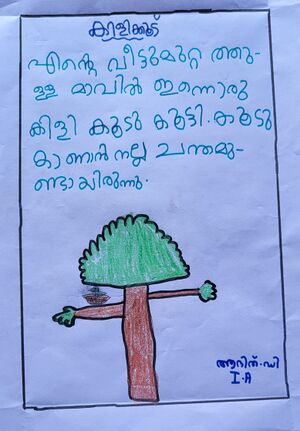 കിളിക്കൂട്
എന്റെ വീട്ടുമുറ്റത്തു-
ള്ള മാവിൽ ഇന്നൊരു
കിളി കൂടു കൂട്ടി. കൂടു
കാണാൻ നല്ല ചന്തമു-
ണ്ടായിരുന്നു.
ആദിത്. ഡി
I.A